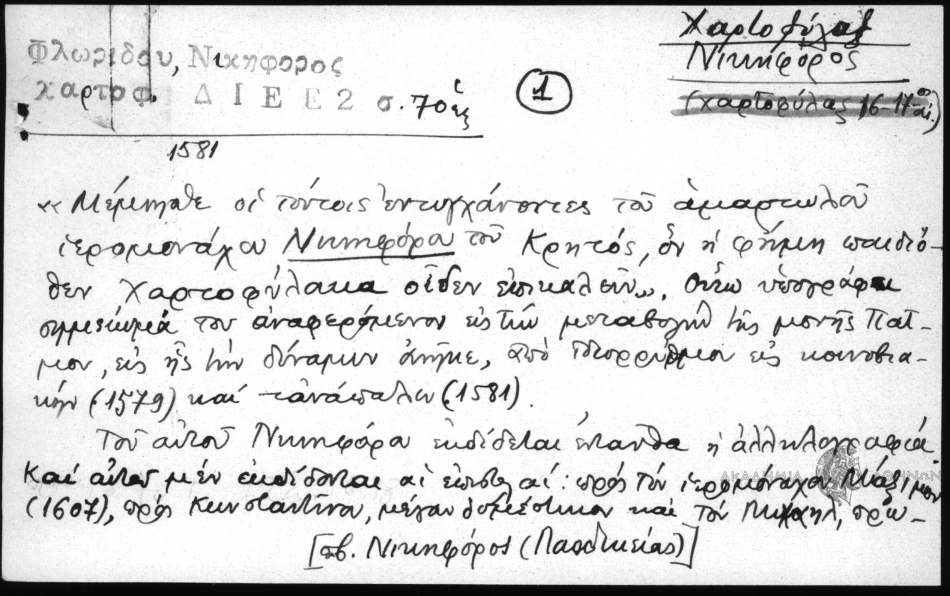 Χαρτοφύλαξ
Νικηφόρος
(χαρτοφύλας 16-17ου αἰ.)
Φλωρίδου, Νικηφορος
χαρτοφ. ΔΙΕΕ2 σ. 70 ἑξ
1
1581
«Μέμνησθε οἱ τούτοις ἐντυγχάνοντες τοῦ ἁμαρτωλοῦ
ἱερομονάχου Νικηφόρου τοῦ Κρητός, ὃν ἡ φήμη παιδιό-
θεν Χαρτοφύλακα οἶδεν ἐπικαλεῖν». Οὕτω ὑπογράφει
σημείωμά του ἀναφερόμενον εἰς τὴν μεταβολὴν τῆς μονῆς Πάτ-
μου, εἰς ἧς τὴν δύναμιν ἀνῆκε, ἀπὸ ἰδιορρύθμου εἰς κοινοβια-
κὴν (1579) καὶ τἀνάπαλιν (1581).
Τοῦ αὐτοῦ Νικηφόρου ἐκδίδεται ἐνταῦθα ἡ ἀλληλογραφία.
Καὶ αὐτοῦ μὲν ἐκδίδονται αἱ ἐπιστολαί: πρὸς τὸν ἱερομόναχον Μάξιμον
(1607), πρὸς Κωνσταντῖνον, μέγαν δομέστικον καὶ τὸν Μιχαήλ, πρω-
[πβ. Νικηφόρος (Λαοδικείας)]
ΑΚΑΔΗΜΙΑ ΑΘΗΝΩΝ